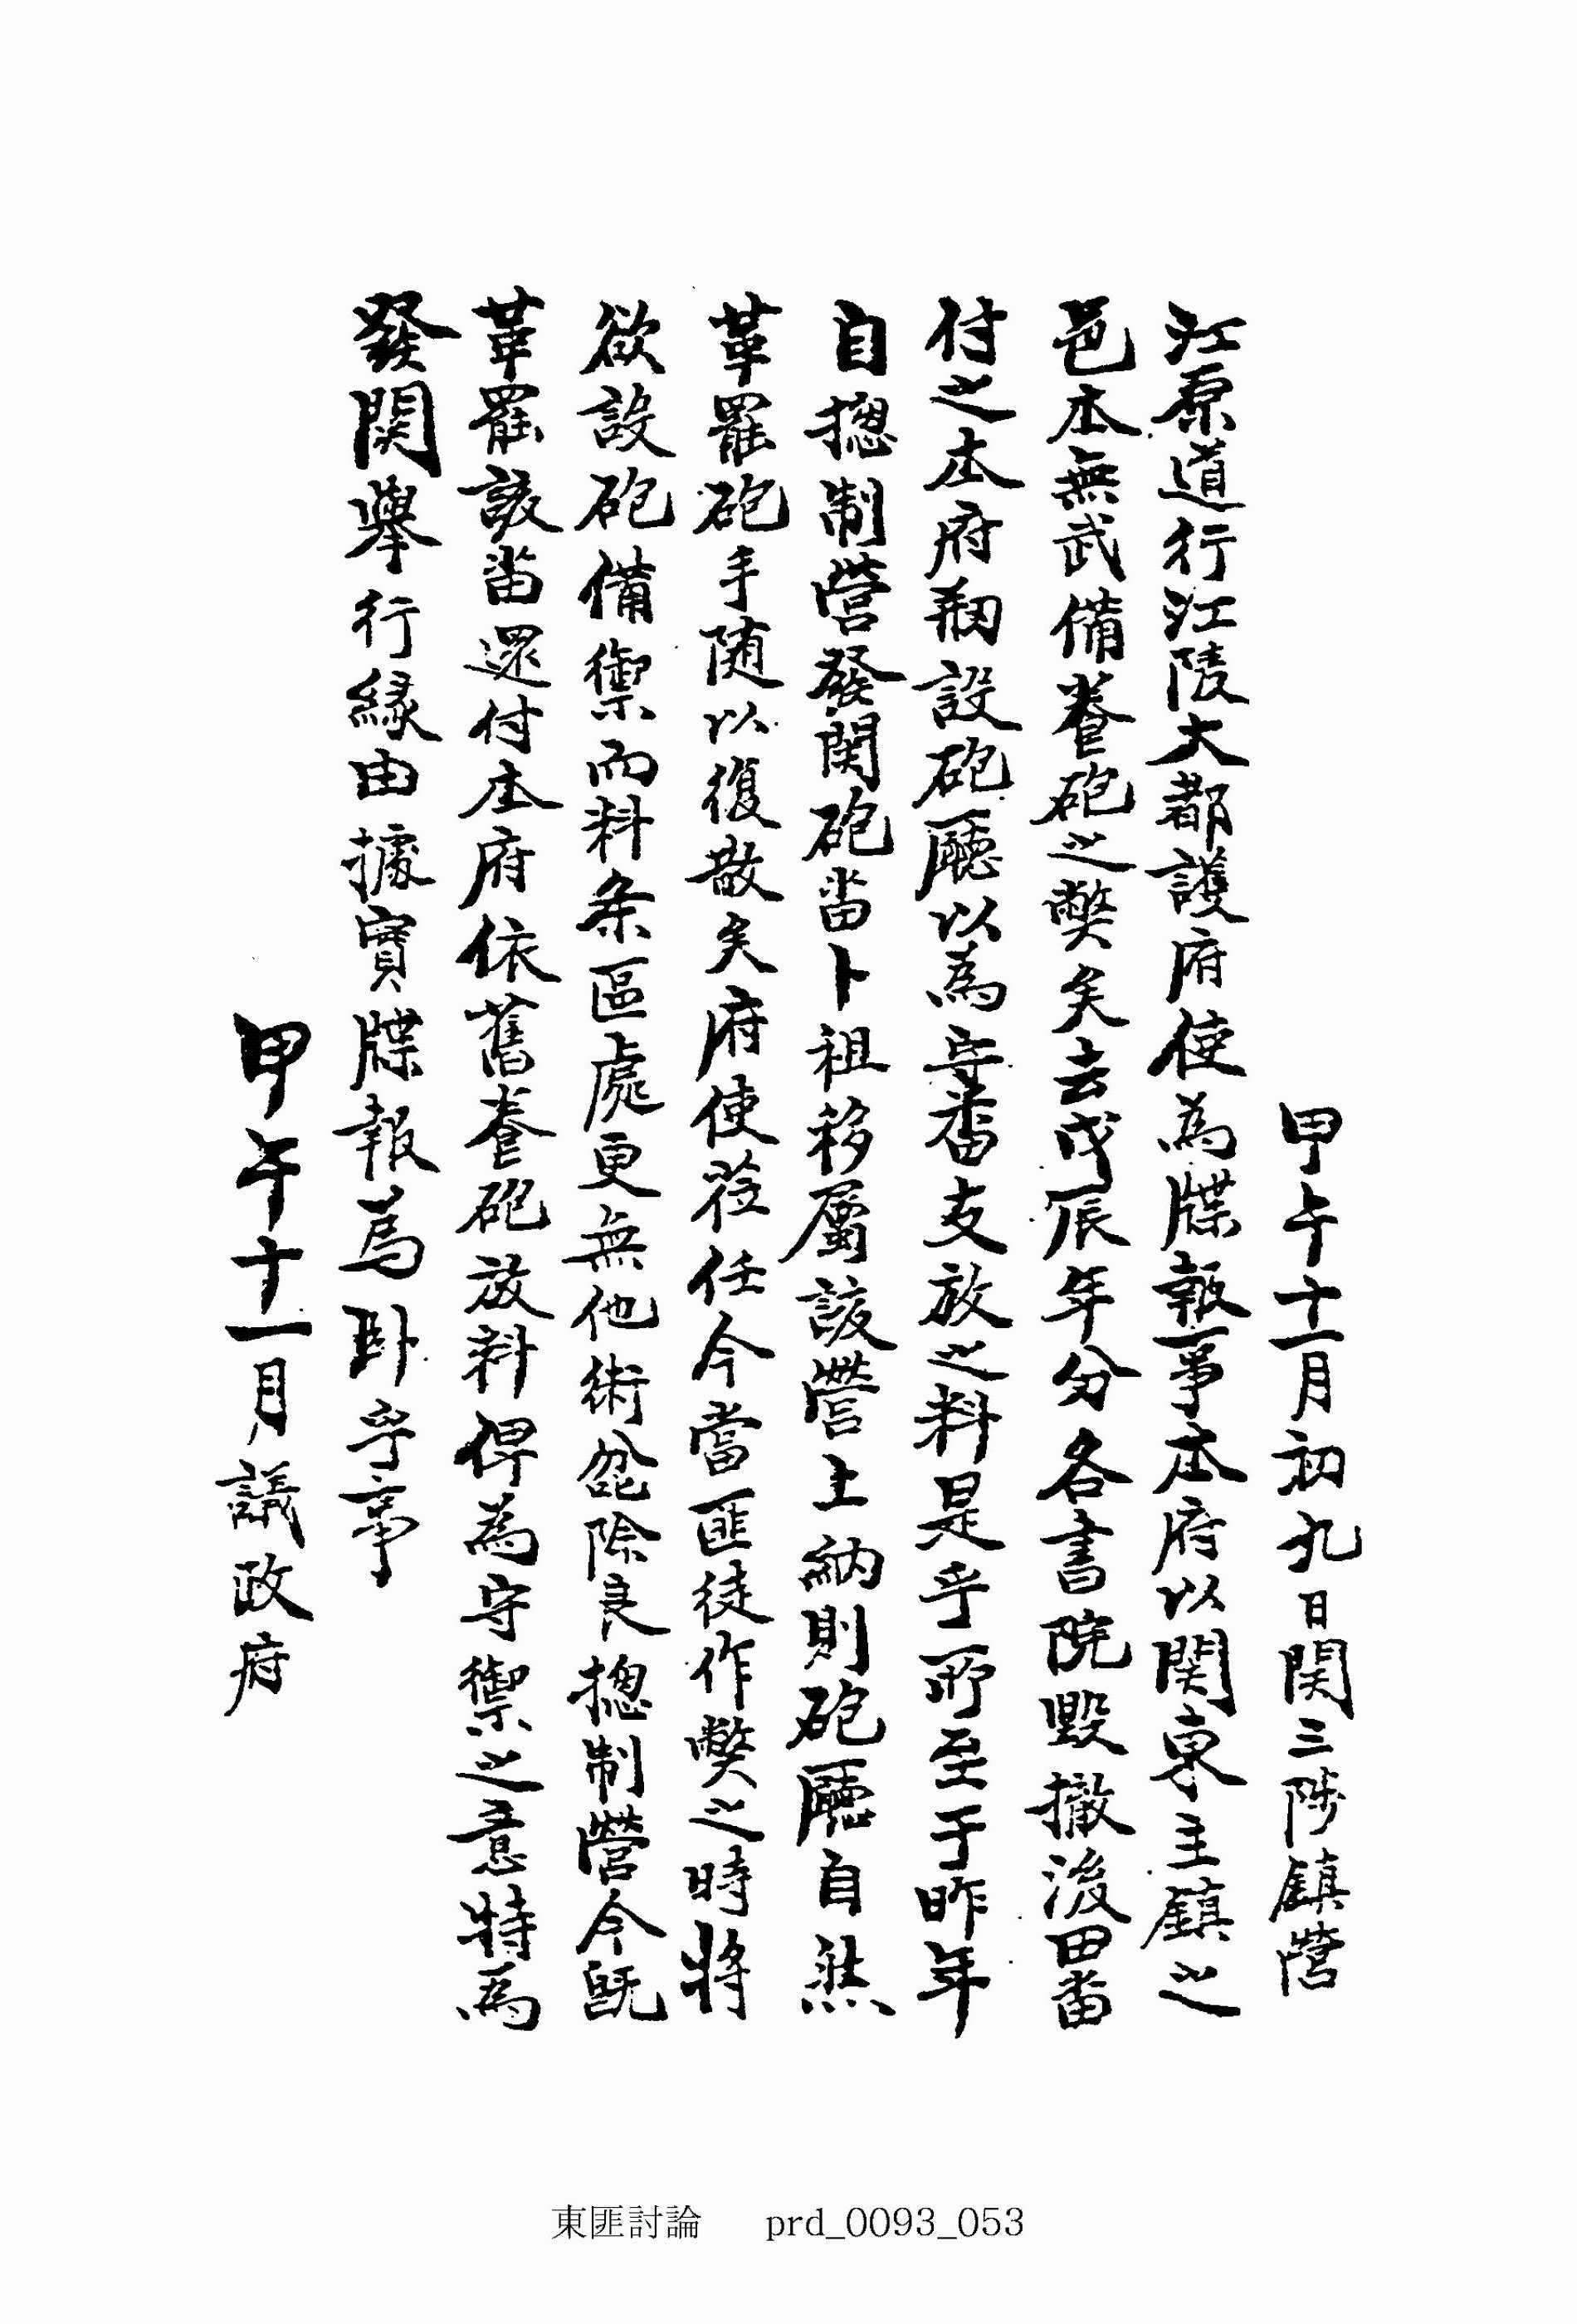 甲午十一月初九日関三陟鎭營
江原道行江陵大都護府使為牒報事本府以関東主鎭之
邑本無武備養砲之弊矣去戊辰年分各書院毀撤後田畓
付之本府刱設砲廳以為守番支放之料是乎所至于昨年
自摠制營發関砲畓卜祖移屬該營上納則砲廳自然
革罷砲手随以復散矣府使莅任今當匪徒作弊之時將
欲設砲備禦而料条區處更無他術忿除良摠制營今既
革罷該畓還付本府依舊養砲放料俾為守禦之意特為
發関擧行縁由據實牒報為卧乎事
甲午十一月議政府
東匪討論 prd_0093_053